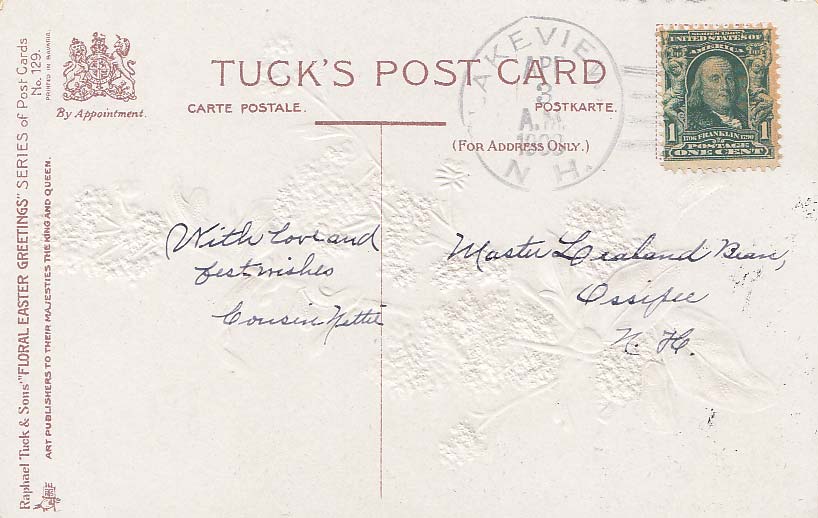 Raphael Tuck & Sons' "FLORAL EASTER GREETINGS" SERIES of Post Cards
No. 129.
PRINTED IN BAVARIA.
ART PUBLISHERS TO THEIR MAJESTIES THE KING AND QUEEN.
By Appointment.
TUCK'S POST CARD
CARTE POSTALE.
POSTKARTE.
(FOR ADDRESS ONLY.)
LAKEVIEW
APR
3
A.M.
N. H.
SERIES 1902
UNITED STATES OF
AMERICA
1706 FRANKLIN 1790
1 POSTAGE 1
ONE CENT
With love and
best wishes
Cousin Nettie
Master Lealand Bean,
Ossipee
N. H.